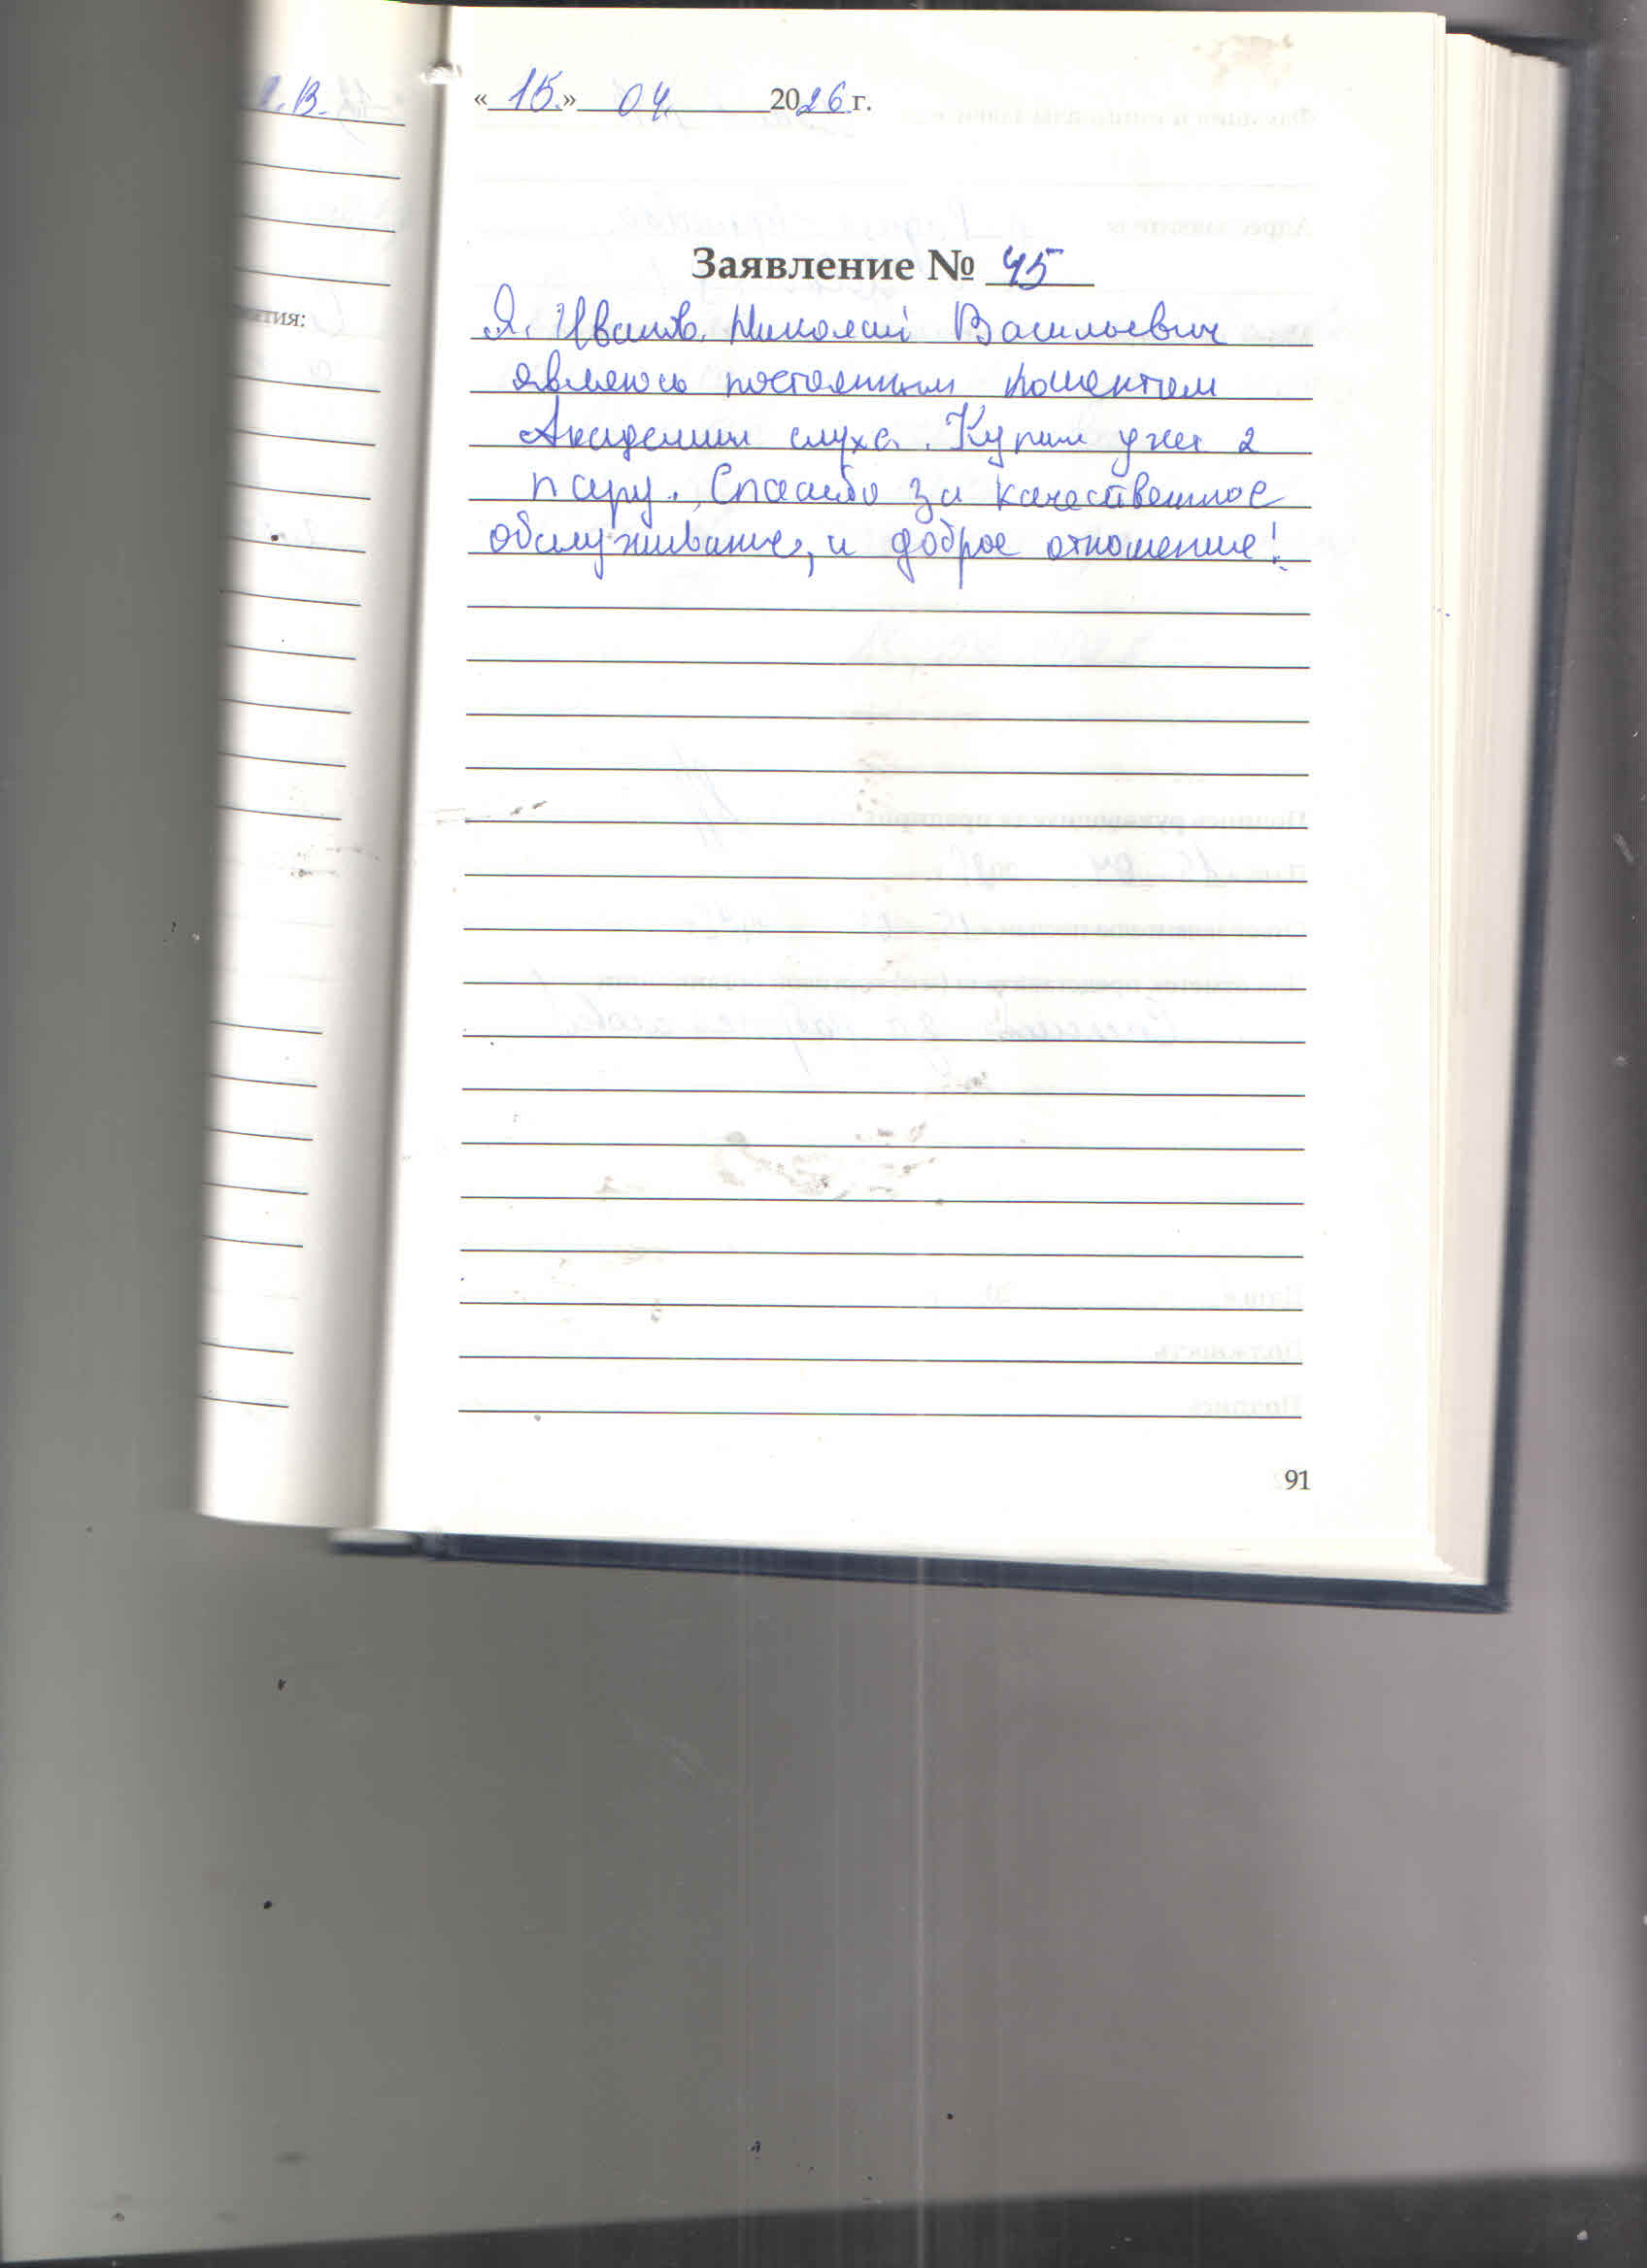 .В.
ятия:
«15.» 04. 2026 г.
Заявление № 45
Я, Иванов Николай Васильевич
являюсь постоянным пациентом
Академии слуха. Купил уже 2
пару. Спасибо за качественное
обслуживание, и доброе отношение!
91